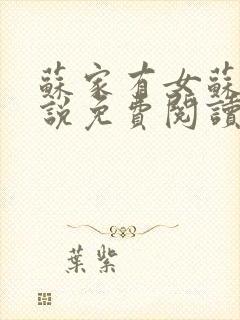 蘇家有女蘇
說免費閱讀
葉紫